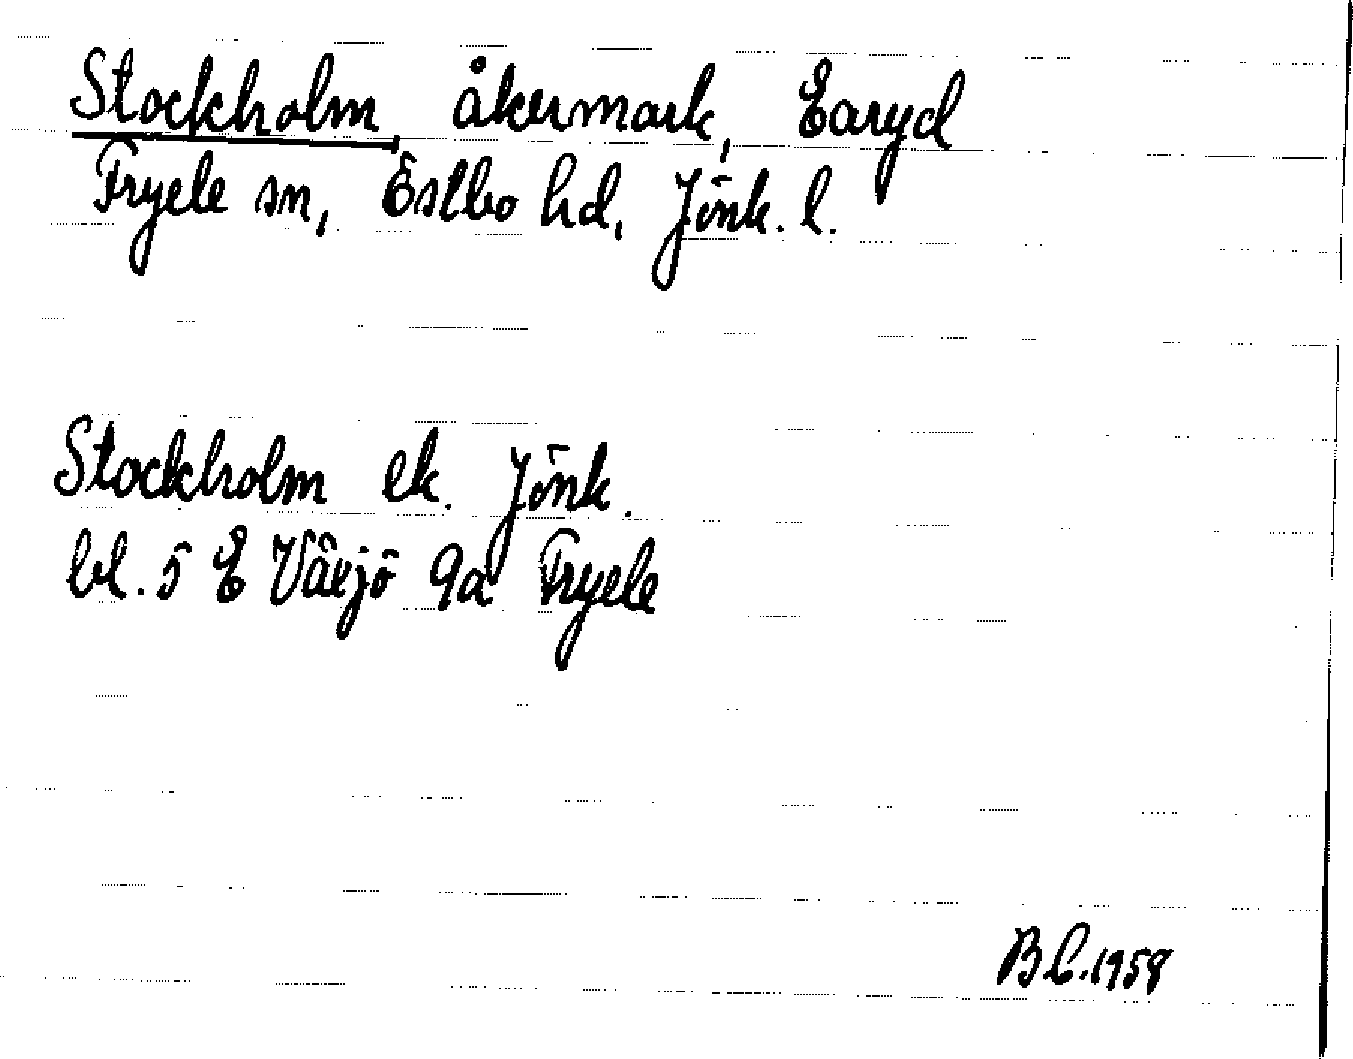 Stockholm, åkermark, Earyd
Fryele sn, Östbo hd, Jönk. l.
Stockholm ek. Jönk.
bl. 5 E Växjö 9a Fryele
B L. 1958